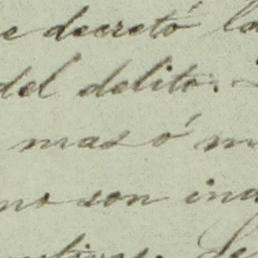 e decretó la
del delito.
mas ó m
no son ind